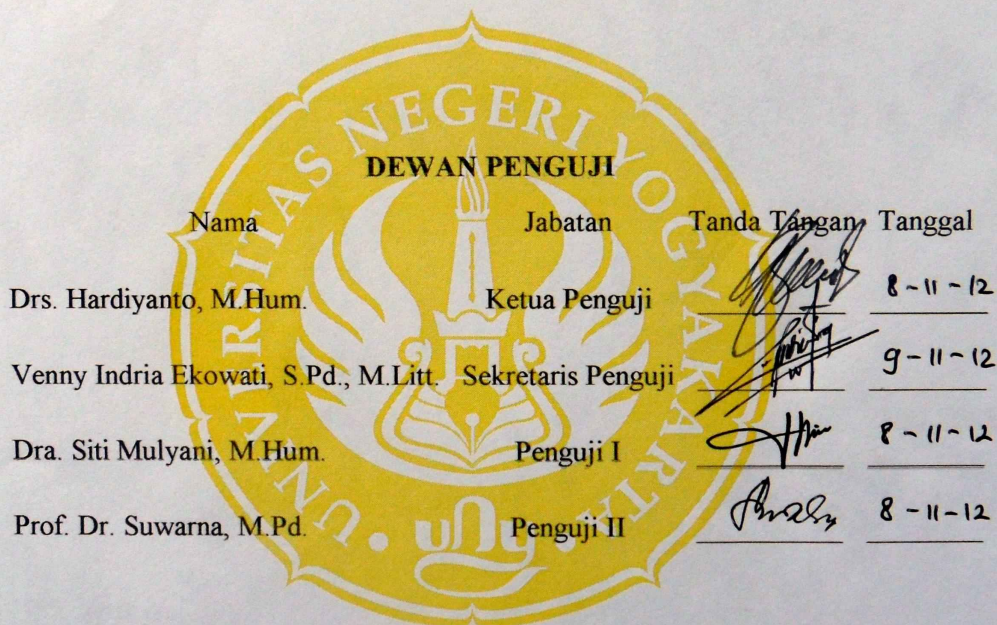 UNIVERSITAS NEGERI YOGYAKARTA
DEWAN PENGUJI
Nama Jabatan Tanda Tangan Tanggal
Drs. Hardiyanto, M.Hum. Ketua Penguji 8-11-12
Venny Indria Ekowati, S.Pd., M.Litt. Sekretaris Penguji 9-11-12
Dra. Siti Mulyani, M.Hum. Penguji I 8-11-12
Prof. Dr. Suwarna, M.Pd. Penguji II 8-11-12
uny